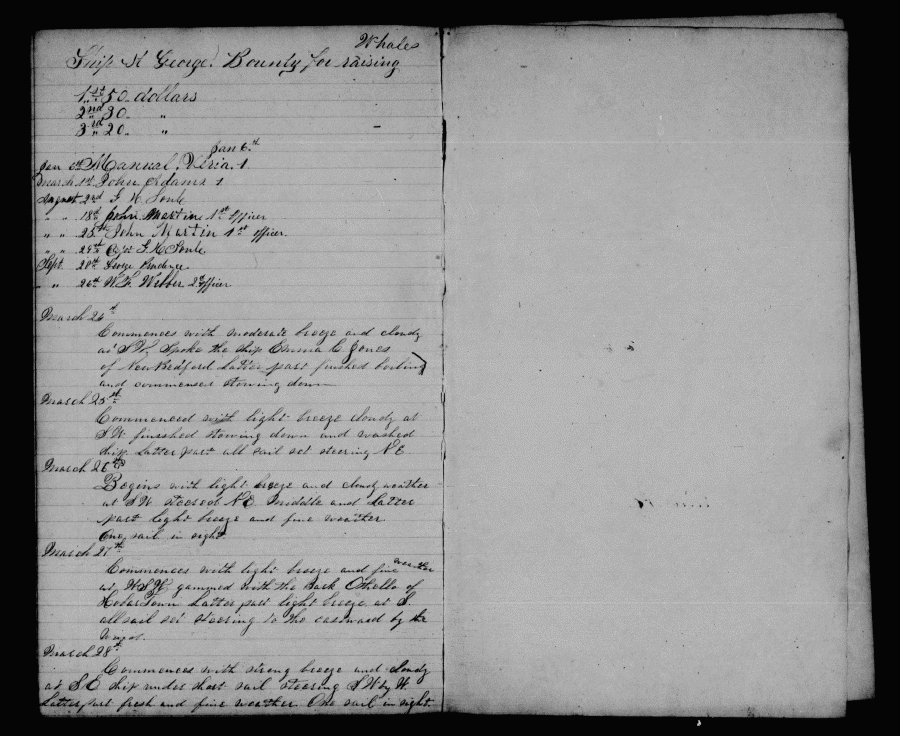 Whales
Ship St George. Bounty for raising
1st 50. dollars
2nd 30. "
3rd 20. "
Jan 6.th
Jan 6th Manual. Veria. 1.
March 1st John Adams 1
August 2nd F H Soule
" " 18th John Martin 1st Officer
" " 25th John Martin 1st officer
" " 29th F H Soule
Sept. 20th George
" " 26th W. F. Webber 2d officer
March 24th
Commences with moderate breeze and cloudy
at S W, Spoke the ship Emma C. Jones
of New Bedford Latter part finished boiling
and commenses stowing down
March 25st
Commenced with light breeze cloudy at
S.W. finished stowing down and washed
ship Latter part all sail set steering N E
March 26th
Begins with light breeze and cloudy weather
at S W steered N E Middle and Latter
part light breeze and fine weather
One sail in sight
March 27th
Commences with light breeze and fine weather
at W S W gammed with the Bark Othello of
Hobar Town Latter part light breeze at S.
all sail set steering to the eastward by the
March 28th
Commences with strong breeze and cloudy
at S E ship under short sail steering S W by W.
Latter part fresh and fine weather. One sail in sight.